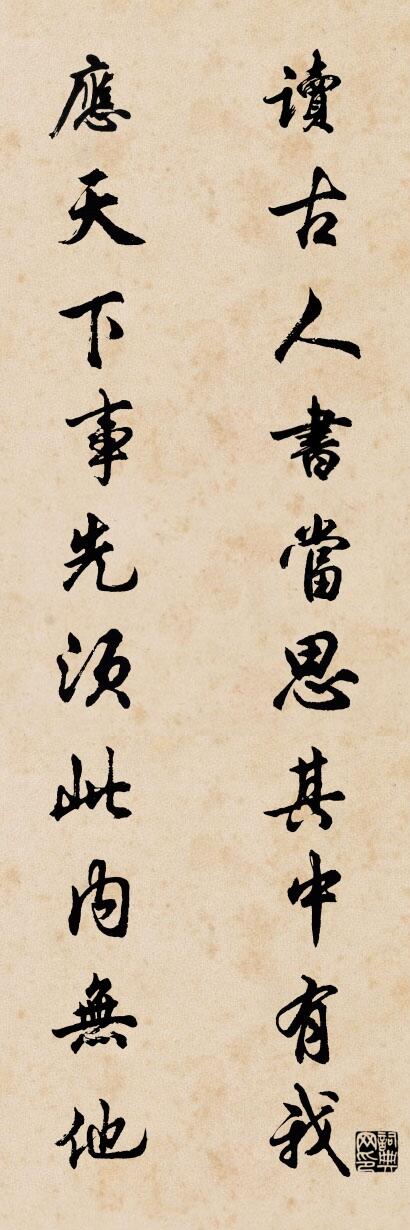 讀古人書當思其中有我
應天下事先須此内無他
詞典网印